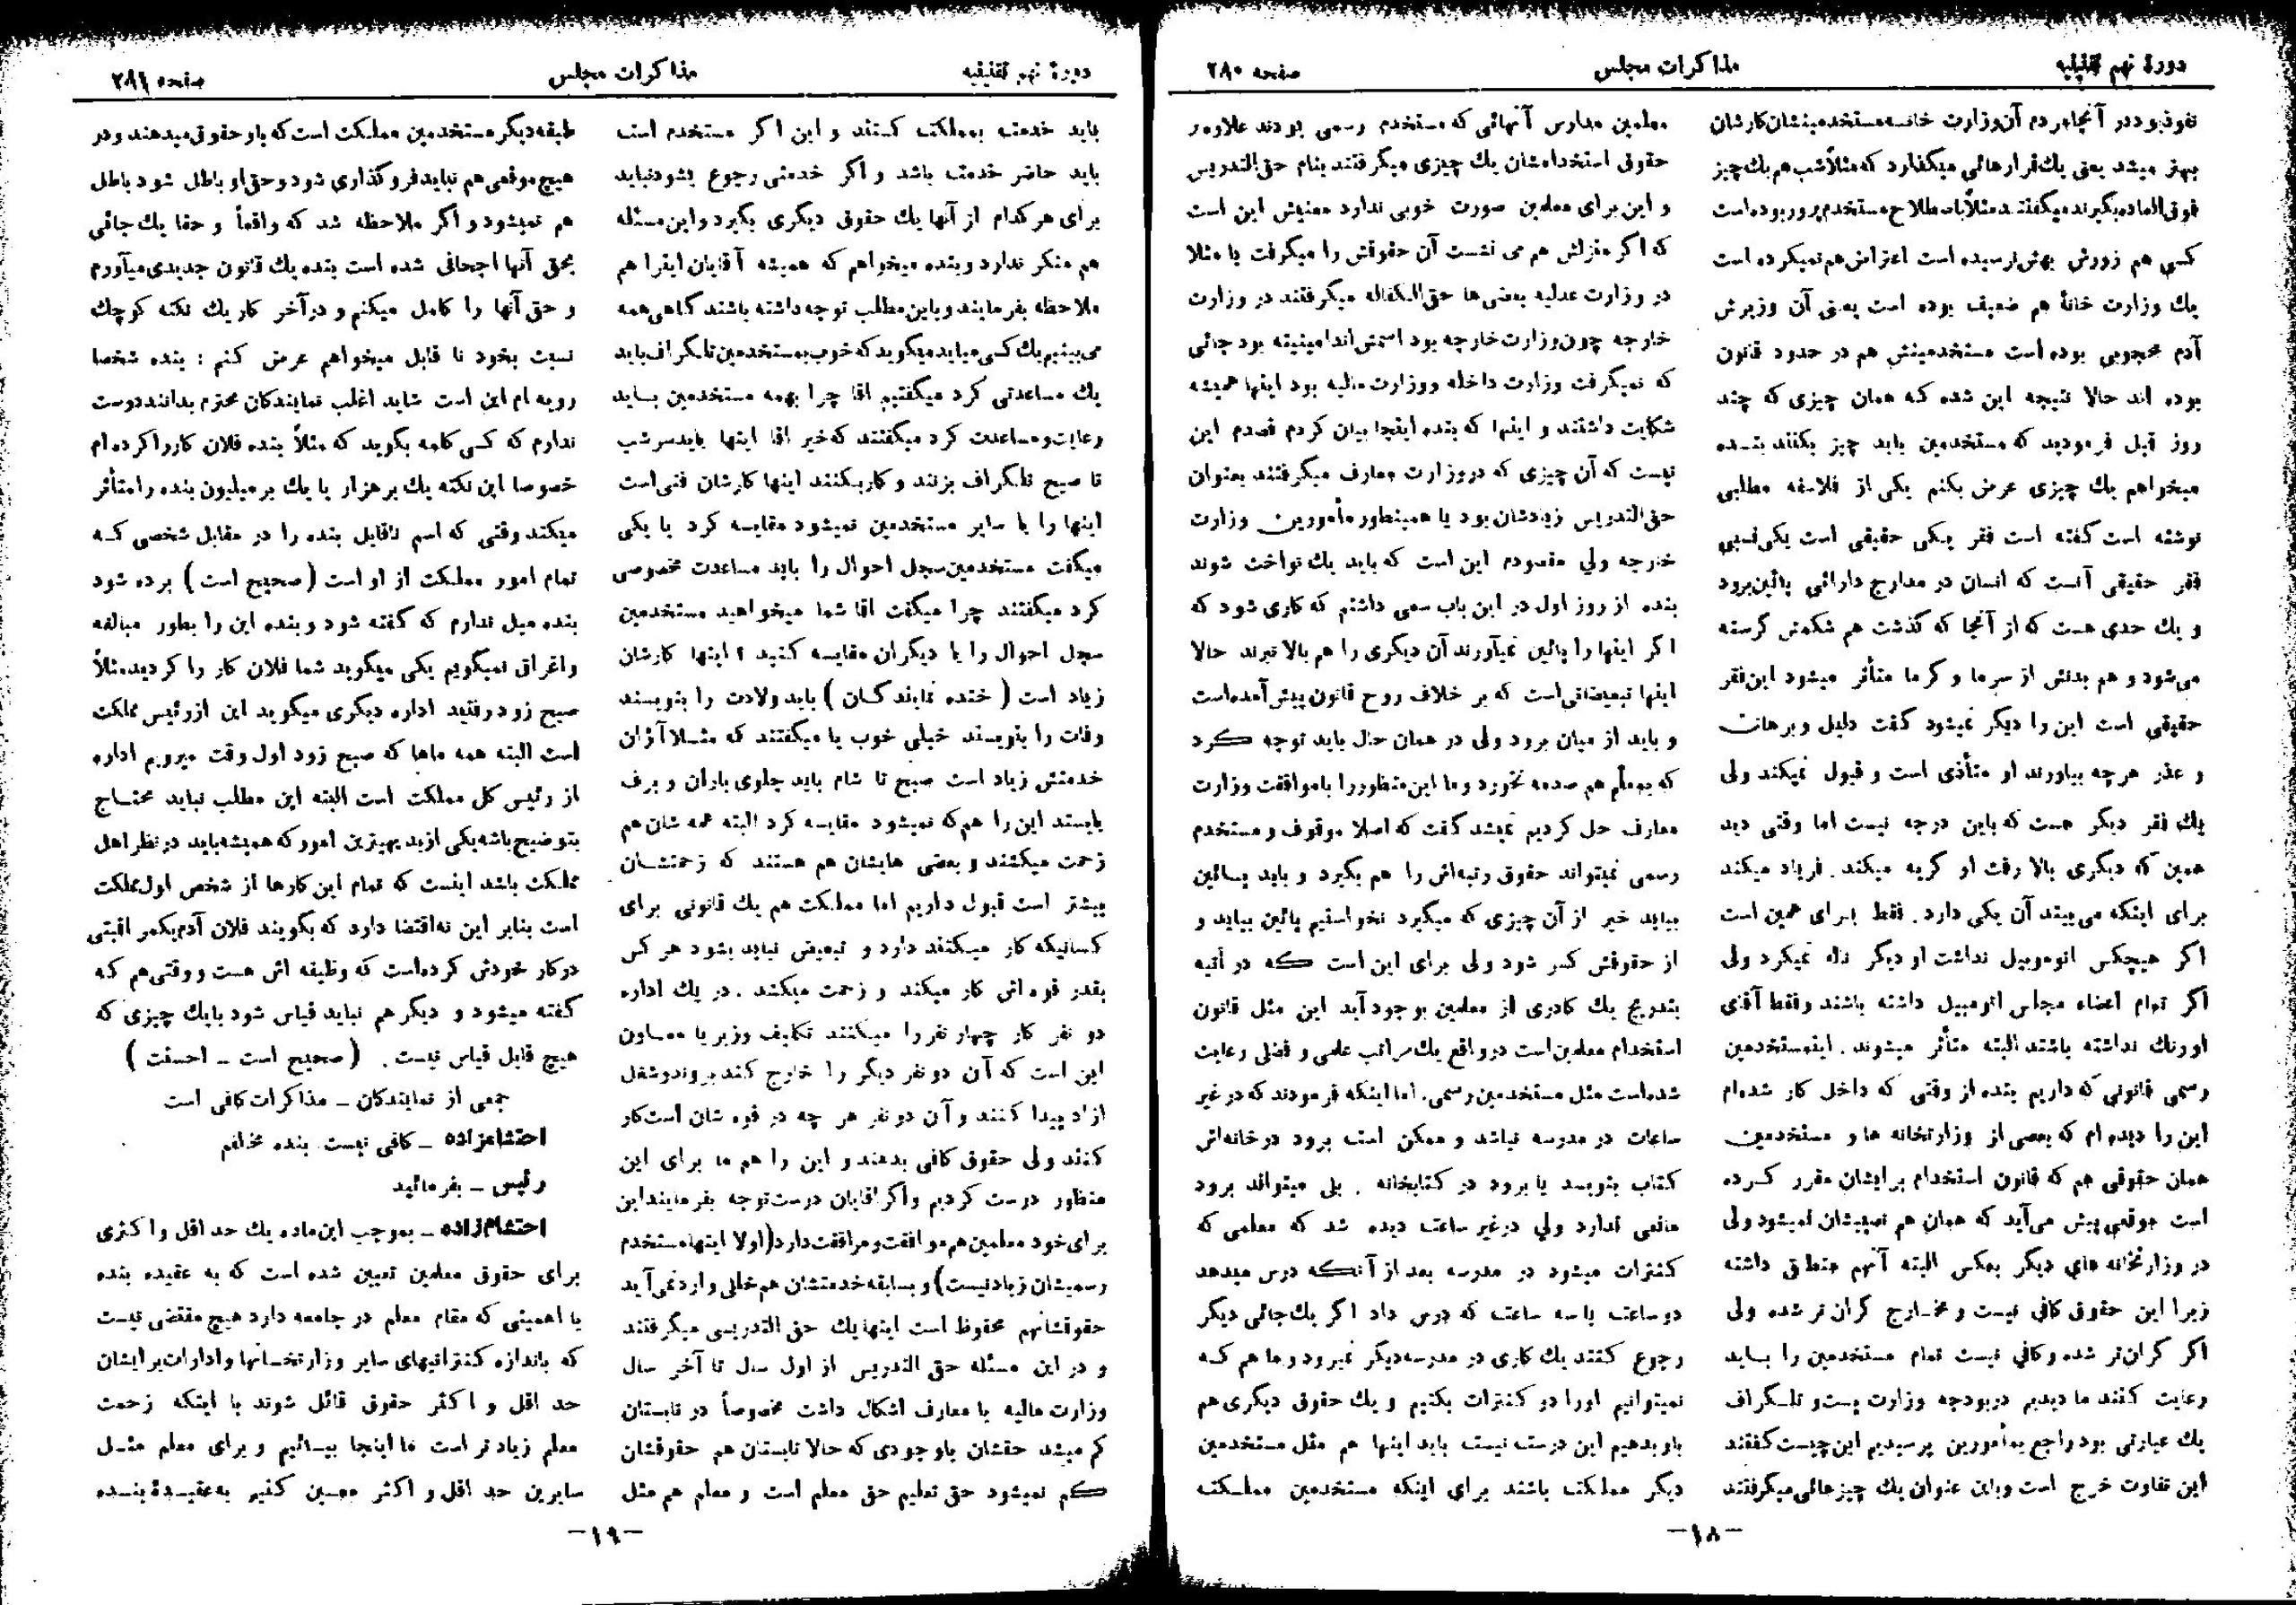 دورهٔ نهم تقنینیه
مذاکرات مجلس
صفحه ۲۸۰
نفوذ بود در آنجا مردم آن وزارت خانه مستخدمینشان کارشان
بهتر میشد یعنی یك قرارهائی میگذارد که مثلاً شب هم یك چیز
فوق‌العاده بگیرند میگفتند مثلاً باصطلاح مستخدم پرور بوده است
کسی هم زورش بهش نرسیده است اعتراض هم نمیکرده است
یك وزارت خانهٔ هم ضعیف بوده است یعنی آن وزیرش
آدم محجوبی بوده است مستخدمینش هم در حدود قانون
بوده اند حالا نتیجه این شده که همان چیزی که چند
روز قبل فرمودید که مستخدمین باید چیز بکنند بنده
میخواهم یك چیزی عرض بکنم یکی از فلاسفه مطلبی
نوشته است گفته است فقر یکی حقیقی است یکی نسبی
فقر حقیقی آنست که انسان در مدارج دارائی پائین برود
و یك حدی هست که از آنجا که گذشت هم شکمش گرسنه
می‌شود و هم بدنش از سرما و گرما متأثر میشود این فقر
حقیقی است این را دیگر نمیشود گفت دلیل و برهان
و عذر هرچه بیاورند او متأذی است و قبول نمیکند ولی
یك فقر دیگر هست که باین درجه نیست اما وقتی دید
همین که دیگری بالا رفت او گریه میکند . فریاد میکند
برای اینکه می‌بیند آن یکی دارد . فقط برای همین است
اگر هیچکس اتوموبیل نداشت او دیگر ناله نمیکرد ولی
اگر تمام اعضاء مجلس اتومبیل داشته باشند و فقط آقای
اورنك نداشته باشند البته متأثر میشوند . این مستخدمین
رسمی قانونی که داریم بنده از وقتی که داخل کار شده‌ام
این را دیده‌ام که بعضی از وزارتخانه ها و مستخدمین
همان حقوقی هم که قانون استخدام برایشان مقرر کرده
است موقعی پیش می‌آید که همان هم نصیبشان نمیشود ولی
در وزارتخانه های دیگر بعکس البته آنهم منطق داشته
زیرا این حقوق کافی نیست و مخارج گران تر شده ولی
اگر گران‌تر شده و کافی نیست تمام مستخدمین را باید
رعایت کنند ما دیدیم در بودجه وزارت پست و تلگراف
یك عبارتی بود راجع بمأمورین پرسیدیم این چیست گفتند
این تفاوت خرج است و باین عنوان یك چیزهائی میگرفتند
معلمین مدارس آنهائی که مستخدم رسمی بودند علاوه بر
حقوق استخدامشان یك چیزی میگرفتند بنام حق‌التدریس
و این برای معلمین صورت خوبی ندارد معنیش این است
که اگر منزلش هم می نشست آن حقوقش را میگرفت یا مثلا
در وزارت عدلیه بعضی‌ها حق‌الکفاله میگرفتند در وزارت
خارجه چون وزارت خارجه بود اسمش اندامینیته بود جائی
که نمیگرفت وزارت داخله و وزارت مالیه بود اینها همیشه
شکایت داشتند و اینها که بنده اینجا بیان کردم قصدم این
نیست که آن چیزی که در وزارت معارف میگرفتند بعنوان
حق‌التدریس زیادشان بود یا همینطور مأمورین وزارت
خارجه ولی مقصودم این است که باید یك نواخت شوند
بنده از روز اول در این باب سعی داشتم که کاری شود که
اگر اینها را پائین نمیآورند آن دیگری را هم بالا نبرند حالا
اینها تبعیضاتی است که بر خلاف روح قانون پیش آمده است
و باید از میان برود ولی در همان حال باید توجه کرد
که بمعلم هم صدمه نخورد و ما این منظور را با موافقت وزارت
معارف حل کردیم نمیشد گفت که اصلا موقوف و مستخدم
رسمی نمیتواند حقوق رتبه‌اش را هم بگیرد و باید پائین
بیاید خیر از آن چیزی که میگیرد نخواستیم پائین بیاید و
از حقوقش کسر شود ولی برای این است که در آتیه
بتدریج یك کادری از معلمین بوجود آید این مثل قانون
استخدام معلمین است در واقع یك مراتب علمی و فضلی رعایت
شده‌است مثل مستخدمین رسمی. اما اینکه فرمودند که در غیر
ساعات در مدرسه نباشد و ممکن است برود در خانه‌اش
کتاب بنویسد یا برود در کتابخانه . بلی میتواند برود
مانعی ندارد ولی در غیر ساعت دیده شد که معلمی که
کنترات میشود در مدرسه بعد از آنکه درس میدهد
دو ساعت یا سه ساعت که درس داد اگر یك جائی دیگر
رجوع کنند یك کاری در مدرسه دیگر نمیرود و ما هم که
نمیتوانیم اورا دو کنترات بکنیم و یك حقوق دیگری هم
باو بدهیم این درست نیست باید اینها هم مثل مستخدمین
دیگر مملکت باشند برای اینکه مستخدمین مملکت
ـ۱۸ـ
دورهٔ نهم تقنینیه
مذاکرات مجلس
صفحه ۲۸۱
باید خدمت بمملکت کنند و این اگر مستخدم است
باید حاضر خدمت باشد و اگر خدمتی رجوع بشود نباید
برای هر کدام از آنها یك حقوق دیگری بگیرد و این مسئله
هم منکر ندارد و بنده میخواهم که همیشه آقایان اینرا هم
ملاحظه بفرمایند و باین مطلب توجه داشته باشند گاهی همه
می‌بینیم یك کسی میاید میگوید که خوب بمستخدمین تلگراف باید
یك مساعدتی کرد میگفتیم اقا چرا بهمه مستخدمین باید
رعایت و مساعدت کرد میگفتند که خیر اقا اینها باید سرشب
تا صبح تلگراف بزنند و کار بکنند اینها کارشان فنی است
اینها را با سایر مستخدمین نمیشود مقایسه کرد یا یکی
میگفت مستخدمین سجل احوال را باید مساعدت مخصوصی
کرد میگفتند چرا میگفت اقا شما میخواهید مستخدمین
سجل احوال را با دیگران مقایسه کنید ؟ اینها کارشان
زیاد است ( خنده نمایندگان ) باید ولادت را بنویسند
وفات را بنویسند خیلی خوب یا میگفتند که مثلا آژان
خدمتش زیاد است صبح تا شام باید جلوی باران و برف
بایستد این را هم که نمیشود مقایسه کرد البته همه شان هم
زحمت میکشند و بعضی هایشان هم هستند که زحمتشان
بیشتر است قبول داریم اما مملکت هم یك قانونی برای
کسانیکه کار میکنند دارد و تبعیض نباید بشود هر کس
بقدر قوه اش کار میکند و زحمت میکشد . در یك اداره
دو نفر کار چهار نفر را میکنند تکلیف وزیر یا معاون
این است که آن دو نفر دیگر را خارج کند بروند و شغل
ازاد پیدا کنند و آن دو نفر هر چه در قوه شان است کار
کنند ولی حقوق کافی بدهند و این را هم ما برای این
منظور درست کردیم و اگر اقایان درست توجه بفرمایند این
برای خود معلمین هم موافقت و مرافقت دارد (اولا اینها مستخدم
رسمیشان زیاد نیست) و بسابقه خدمتشان هم خللی وارد نمی‌آید
حقوقشانهم محفوظ است اینها یك حق التدریسی میگرفتند
و در این مسئله حق التدریس از اول سال تا آخر سال
وزارت مالیه با معارف اشکال داشت مخصوصاً در تابستان
کم میشد حقشان باوجودی که حالا تابستان هم حقوقشان
کم نمیشود حق تعلیم حق معلم است و معلم هم مثل
طبقه دیگر مستخدمین مملکت است که باو حقوق میدهند و در
هیچ موقعی هم نباید فروگذاری شود و حق او باطل شود باطل
هم نمیشود و اگر ملاحظه شد که واقعاً و حقا یك جائی
بحق آنها اجحافی شده است بنده یك قانون جدیدی میآورم
و حق آنها را کامل میکنم و در آخر کار یك نکته کوچك
نسبت بخود نا قابل میخواهم عرض کنم : بنده شخصا
رویه ام این است شاید اغلب نمایندگان محترم بدانند دوست
ندارم که کسی کلمه بگوید که مثلاً بنده فلان کار را کرده ام
خصوصا این نکته یك بر هزار یا یك بر میلیون بنده را متأثر
میکند وقتی که اسم ناقابل بنده را در مقابل شخصی که
تمام امور مملکت از او است (صحیح است) برده شود
بنده میل ندارم که گفته شود و بنده این را بطور مبالغه
و اغراق نمیگویم یکی میگوید شما فلان کار را کردید مثلاً
صبح زود رفتید اداره دیگری میگوید این از رئیس مملکت
است البته همه ماها که صبح زود اول وقت میرویم اداره
از رئیس کل مملکت است البته این مطلب نباید محتاج
بتوضیح باشد یکی از بدیهیترین امور که همیشه باید در نظر اهل
مملکت باشد اینست که تمام این کارها از شخص اول مملکت
است بنابر این نه‌اقتضا دارد که بگویند فلان آدم یکمراقبتی
در کار خودش کرده‌است که وظیفه اش هست و وقتی هم که
گفته میشود و دیگر هم نباید قیاس شود با یك چیزی که
هیچ قابل قیاس نیست . (صحیح است ـ احسنت )
جمعی از نمایندگان ـ مذاکرات کافی است
احتشامزاده ـ کافی نیست بنده مخالفم
رئیس ـ بفرمائید
احتشام‌زاده ـ بموجب این ماده یك حد اقل و اکثری
برای حقوق معلمین تعیین شده است که به عقیده بنده
با اهمیتی که مقام معلم در جامعه دارد هیچ مقتضی نیست
که باندازه کنتراتیهای سایر وزارتخانها و ادارات برایشان
حد اقل و اکثر حقوق قائل شوند با اینکه زحمت
معلم زیاد تر است ما اینجا بیائیم و برای معلم مثل
سایرین حد اقل و اکثر معین کنیم به‌عقیدهٔ بنده
ـ۱۹ـ